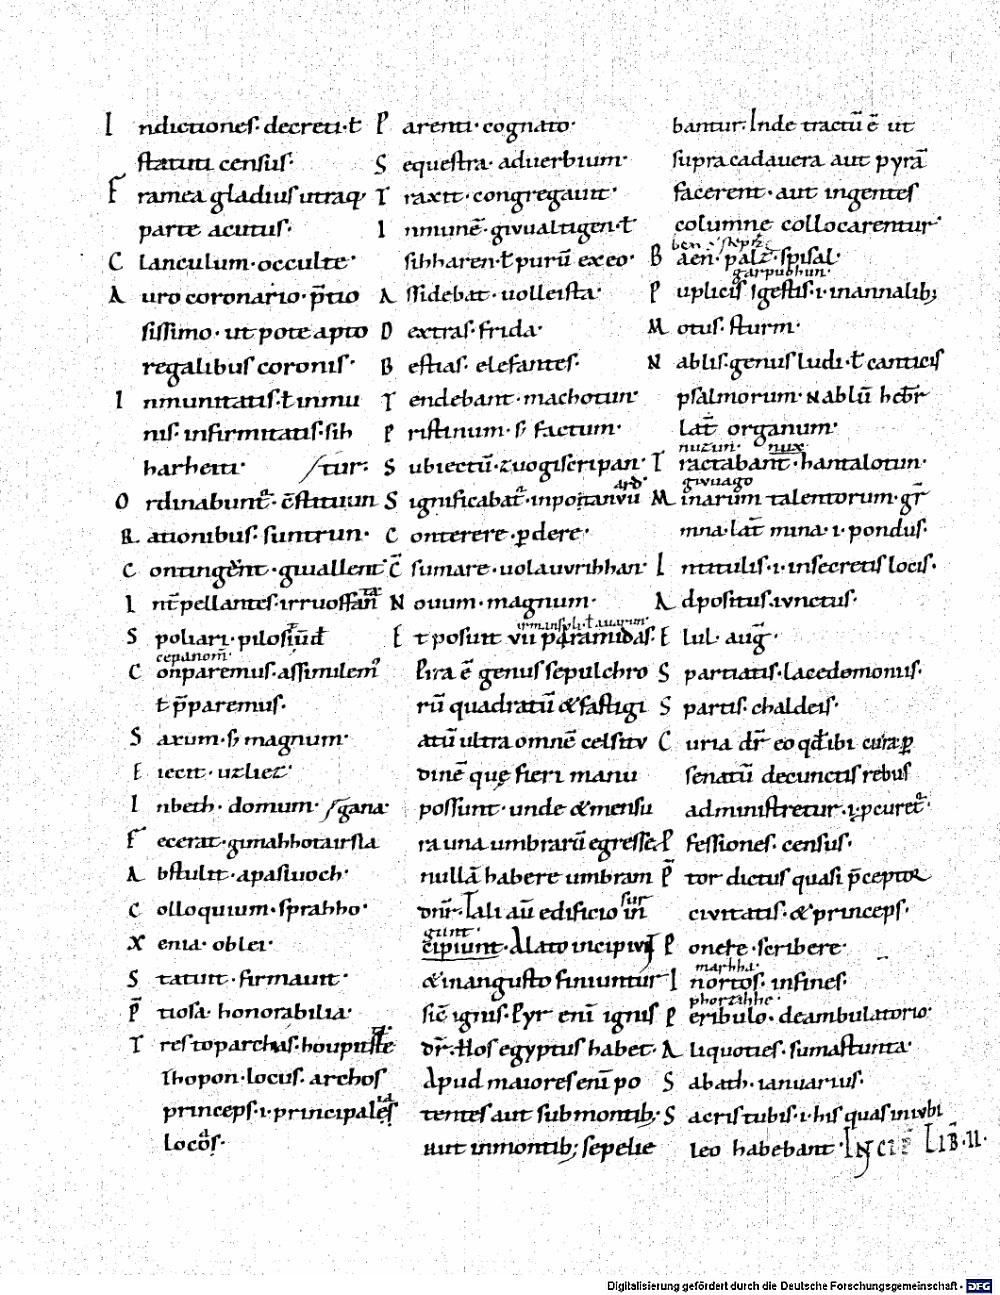 Indictiones· decreti· ł
statuti census:
Framea gladius utraq;
parte acutus·
Clanculum· occulte·
Auro coronario· p̄tio
sissimo· ut pote apto
regalibus coronis·
Inmunitatis· ł inmu
nis· infirmitatis· sih
harheiti· stur:
Ordinabunt᷑· c̄stituun
Rationibus· suntrun·
Contingeret· giuallent
Int̄pellantes· irruoffan
Spoliari· pilosi
cepanom̄·
Conparemus· assimilem᷒
ł p̄paremus·
Saxum· s; magnum·
Eiecit· uzliez·
Inbeth· domum· sgana·
Fecerat· gimahhotairsla
Abstulit· apasiuoch·
Colloquium· sprahho·
Xenia· oblei·
Statuit· firmauit·
P̄tiosa· honorabilia·
Trestoparchas· houpitste
Thopon· locus· archos
princeps· i· principales
locos·
Parenti· cognato·
Sequestra· aduerbium·
Traxit· congregauit·
Inmunē· giuualtigen· ł
sihharen· ł purū ex eo·
Assidebat· uolleista·
Dextras· frida·
Bestias· elefantes·
Tendebant· machotun·
Pristinum· s; factum·
Subiectū· zuogiscripan·
Significabat᷑· inpotanvū
Conterere· ꝑdere·
C̄sumare· uolauurihhan·
Nouum· magnum·
Et posuit vii pyramidas·
Pira ē genus sepulchro
rū quadratū & fastigi
atū ultra omnē celsitv
dinē quę fieri manu
possunt· unde & mensu
ra una umbrarū egresse
nullā habere umbram
dn̄r· Tali aū edificio in
sur
giunt·
cipiunt· A lato incipiuƞt
& in angusto finiuntur
sic̄ ignis· Pyr enī ignis
dr̄· Hos egyptus habet·
Apud maiores enī po
tentes aut sub montib;
aut in montib; sepelie
bantur· Inde tractū ē ut
supra cadauera aut pyrā
facerent· aut ingentes
columne collocarentur·
Baen· palz· spisal·
garpuohun·
Puplicis gestis· i· in annalib;
Motus· sturm·
Nablis· genus ludi· ł canticis
psalmorum· Nablū hebr̄
lat̄ organum·
nuzun· nux
Tractabant· hantalotun·
giuuago
Minarum talentorum· gr̄
mna· lat̄ mina· i· pondus·
In titulis· i· in secretis locis·
Adpositus· iunctus·
Elul· auḡ·
Spartiatis· lacedemoniis·
Spartis· chaldeis·
Curia dr̄ eo qđ ibi cura ꝑ
senatū de cunctis rebus
administretur· ł pcuret᷑·
Pfessiones· census·
P̄tor dictus quasi p̄ceptor
civitatis· & princeps·
Ponere· scribere·
marhha·
In ortos· in fines·
phorzihhe·
Peribulo· deambulatorio·
Aliquoties· sumastunta·
Sabath· ianuarius·
Sacris tubis· i· his quas in iubi
leo habebant· Incip̄ Lib̄· II·
Digitalisierung gefördert durch die Deutsche Forschungsgemeinschaft - DFG